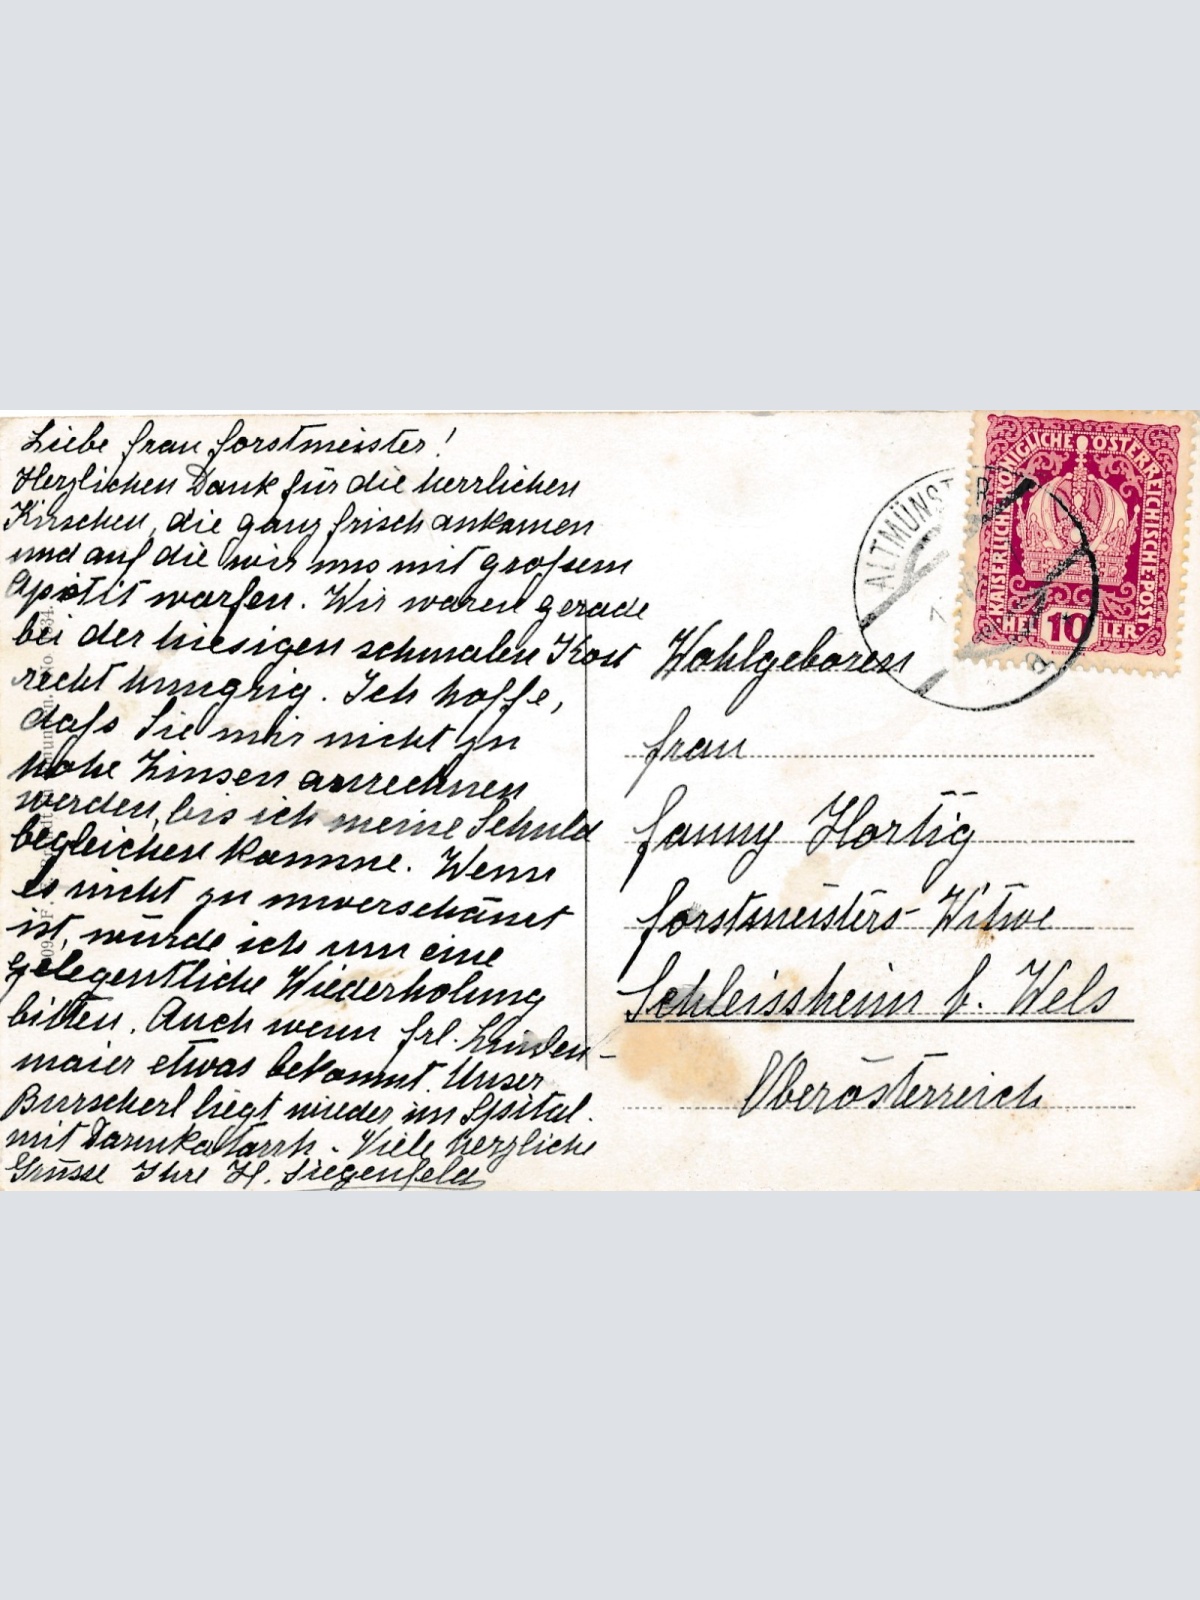 Liebe Frau Forstmeister!
Herzlichen Dank für die herrlichen
Kirschen, die ganz frisch ankamen
und auf die wir uns mit großem
Apetit warfen. Wir waren gerade
bei der hiesigen schmalen Kost
recht hungrig. Ich hoffe,
daß Sie mir nicht zu
hohe Zinsen anrechnen
werden, bis ich meine Schuld
begleichen kannne. Wenn
es nicht zu unverschämt
ist, würde ich um eine
gelegentliche Wiederholung
bitten. Auch wenn Frl. Linden-
maier etwas bekommt. Unser
Burscherl liegt wieder im Spital
mit Darmkatarrh - Viele herzliche
Grüsse Ihre H. Siegenfeld
KAISERLICH·KÖNIGLICHE ÖSTERREICHISCHE·POST
HELLER
10
ALTMÜNSTER
a
Wohlgeboren
Frau
Fanny Hartig
Forstmeisters-Witwe
Schleissheim b. Wels
Oberösterreich